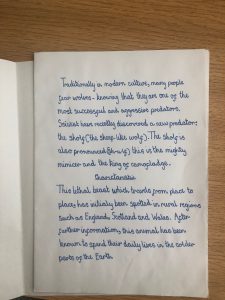 Traditionally a modern culture, many people
fear wolves - knowing that they are one of the
most successful and aggressive predators.
Scistist have recitly discovered a new predator:
the sholf ("the sheep-like wolf"). The sholf is
also pronounced (sh-u-lf) this is the mighty
mimicer and the king of camogladge.
Characteristic
This lithal beast which travels from place to
place, has initialy been spotted in rural regions
such as England, Scotland and Wales. After
further information, this animal has been
known to spend their daily lives in the colder
parts of the Earth.